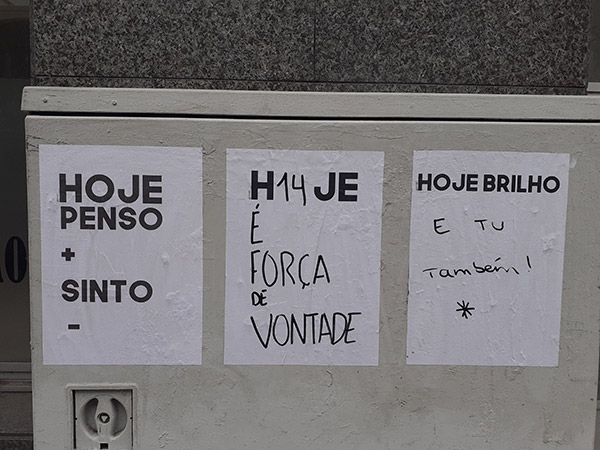 HOJE
PENSO
+
SINTO
-
H14JE
É
FORÇA
DE
VONTADE
HOJE BRILHO
E TU
também!
*